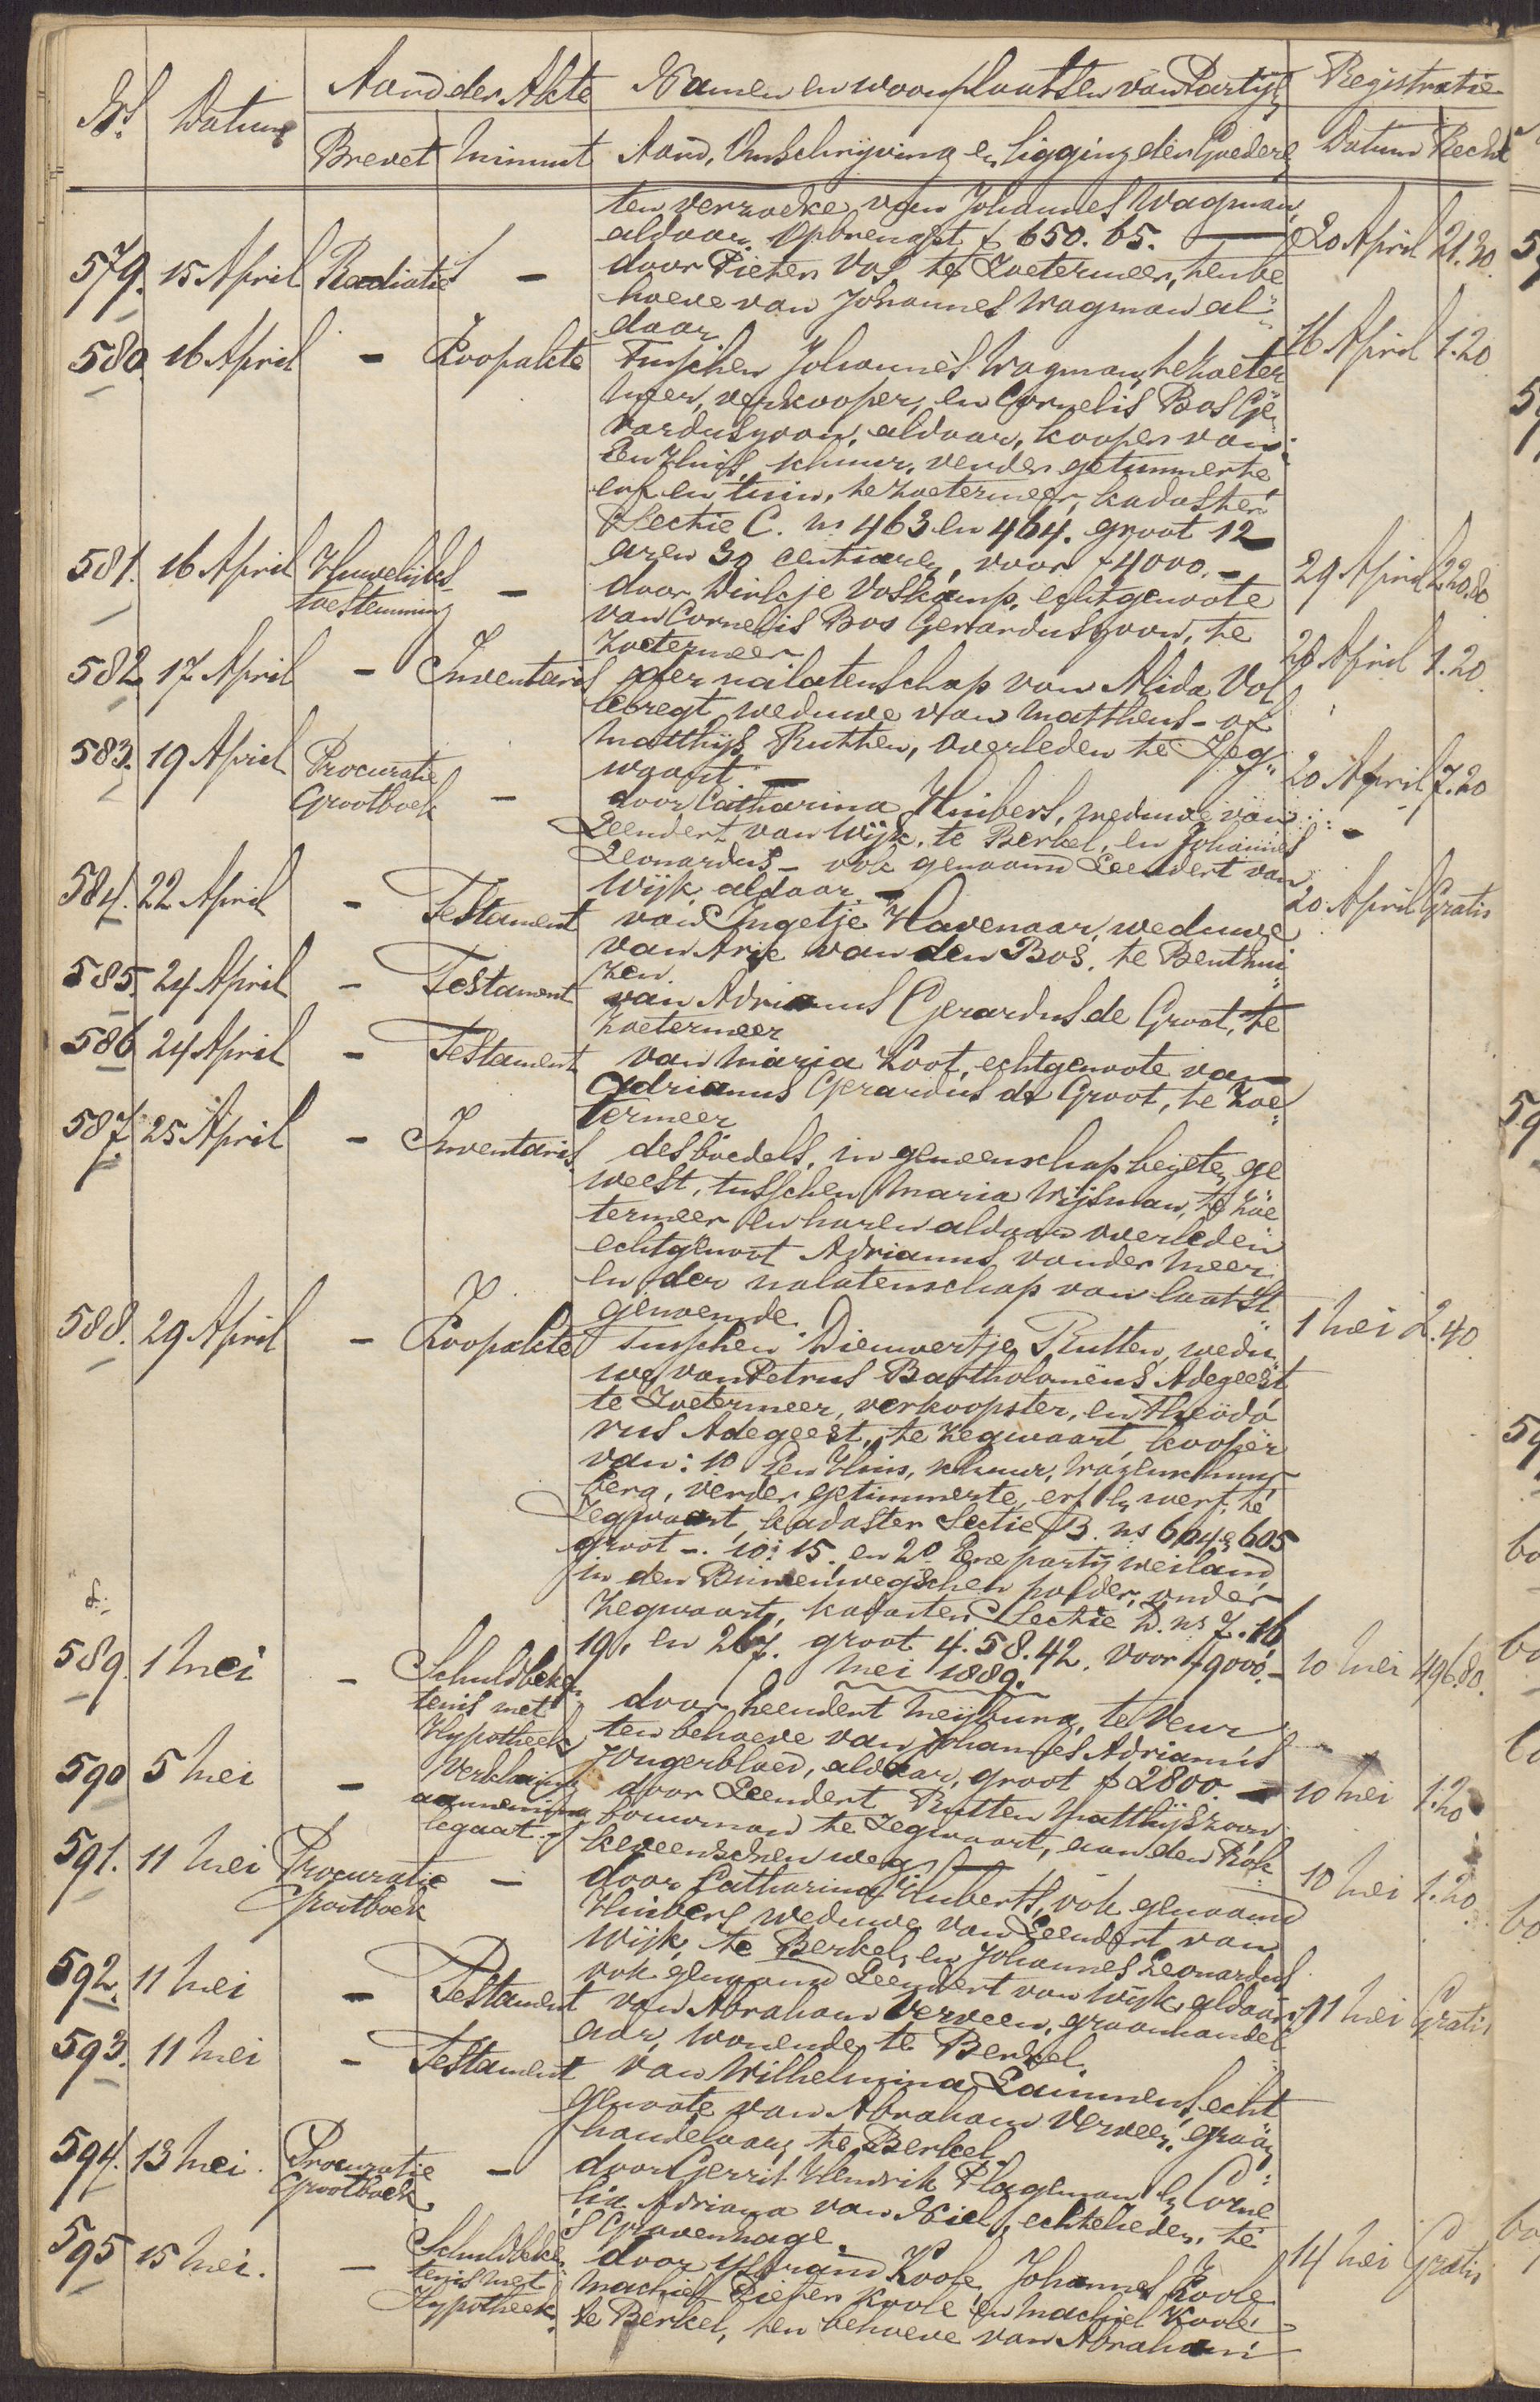 No. Datum Aard der Akte Namen en woonplaatsen van Partijen Registratie
Brevet Minuut Aard, Omschrijving en ligging der Goederen Datum Recht
ten verzoeke van Johannes Wagman,
aldaar. Opbrengst f 650.65. — 20 April 21.30
579. 15 April Radiatie — door Pieter Vos, te Zoetermeer, ten be
hoeve van Johannes Wagman al„
daar 16 April 1.20
580. 16 April — Koopakte Tusschen Johannes Wagman, te Zoeter
meer, verkooper, en Cornelis Bos Ge„
rarduszoon, aldaar, kooper van:
Een Huis, schuur, verder getimmerte
erf en tuin, te Zoetermeer, kadaster
Sectie C. ns 463 en 464. groot 12
aren 30 centiaren, voor f 4000.— 29 April 220.80
581. 16 April Huwelijks — door Dirkje Voskamp, echtgenoote
toestemming van Cornelis Bos Gerarduszoon, te
Zoetermeer 20 April 1.20
582 17 April — Inventaris der nalatenschap van Alida Vol
lebregt, weduwe van Mattheus- of
Matthijs Rutten, overleden te Zeg„
waart — 20 April 7.20
583. 19 April Procuratie — door Catharina Huibers, weduwe van
Grootboek Leendert van Wijk, te Berkel, en Johannes
Leonardus- ook genaamd Leendert van
Wijk, aldaar — 20 April Gratis
584. 22 April — Testament van Ingetje Havenaar, weduwe
van Arie van den Bos, te Benthui
zen
585. 24 April — Testament van Adrianus Gerardus de Groot, te
Zoetermeer
586 24 April — Testament van Maria Koot, echtgenoote van
Adrianus Gerardus de Groot, te Zoe„
termeer
587. 25 April — Inventaris des boedels, in gemeenschap bezeten ge
weest, tusschen Maria Wijsman, te Zoe
termeer en haren aldaar overleden
echtgenoot Adrianus van der Meer
en der nalatenschap van laatst„
genoemde. 1 Mei 2.40
588. 29 April — Koopakte Tusschen Dieuwertje Rutten, wedu
we van Petrus Bartholomëus Adegeest
te Zoetermeer, verkoopster, en Theodo
rus Adegeest, te Zegwaart, kooper
van: 1o Een Huis, schuur, wagenschuur
berg, verder getimmerte, erf en werf, te
Zegwaart, kadaster Sectie B. ns 604 en 605
groot —. 10. 15. en 2o Eene partij weiland,
in den Binnenwegschen polder, onder
Zegwaart, kadaster Sectie D. ns 7. 16
19. en 267. groot 4.58.42. voor f 9000.— 10 Mei 496.80.
Mei 1889.
589. 1 Mei — Schuldbeken door Leendert Meijburg, te Veur
tenis met ten behoeve van Johannes Adrianus
Hypotheek Jongerbloed, aldaar, groot f 2800.— 10 Mei 1.20
590 5 Mei — Verklaring door Leendert Rutten Matthijszoon
aanneming bouwman te Zegwaart, aan den Rok„
legaat keveenschen weg — 10 Mei 1.20
591. 11 Mei Procuratie — door Catharina Huberts, ook genaamd
Grootboek Huibers, weduwe van Leendert van
Wijk, te Berkel, en Johannes Leonardus
ook genaamd Leendert van Wijk, aldaar 11 Mei Gratis
592. 11 Mei — Testament van Abraham Verveen, graanhandel
aar, wonende te Berkel.
593. 11 Mei — Testament van Wilhelmina Lammens, echt
genoote van Abraham Verveen, graan
handelaar, te Berkel.
594. 13 Mei. Procuratie — door Gerrit Hendrik Plageman en Corne
Grootboek lia Adriana van Niel, echtelieden, te
's Gravenhage. 14 Mei Gratis
595 15 Mei. — Schuldbeken door IJsbrand Koole, Johannes Koole
tenis met Machiel Pieter Koole en Machiel Koole
Hypotheek. te Berkel, ten behoeve van Abraham